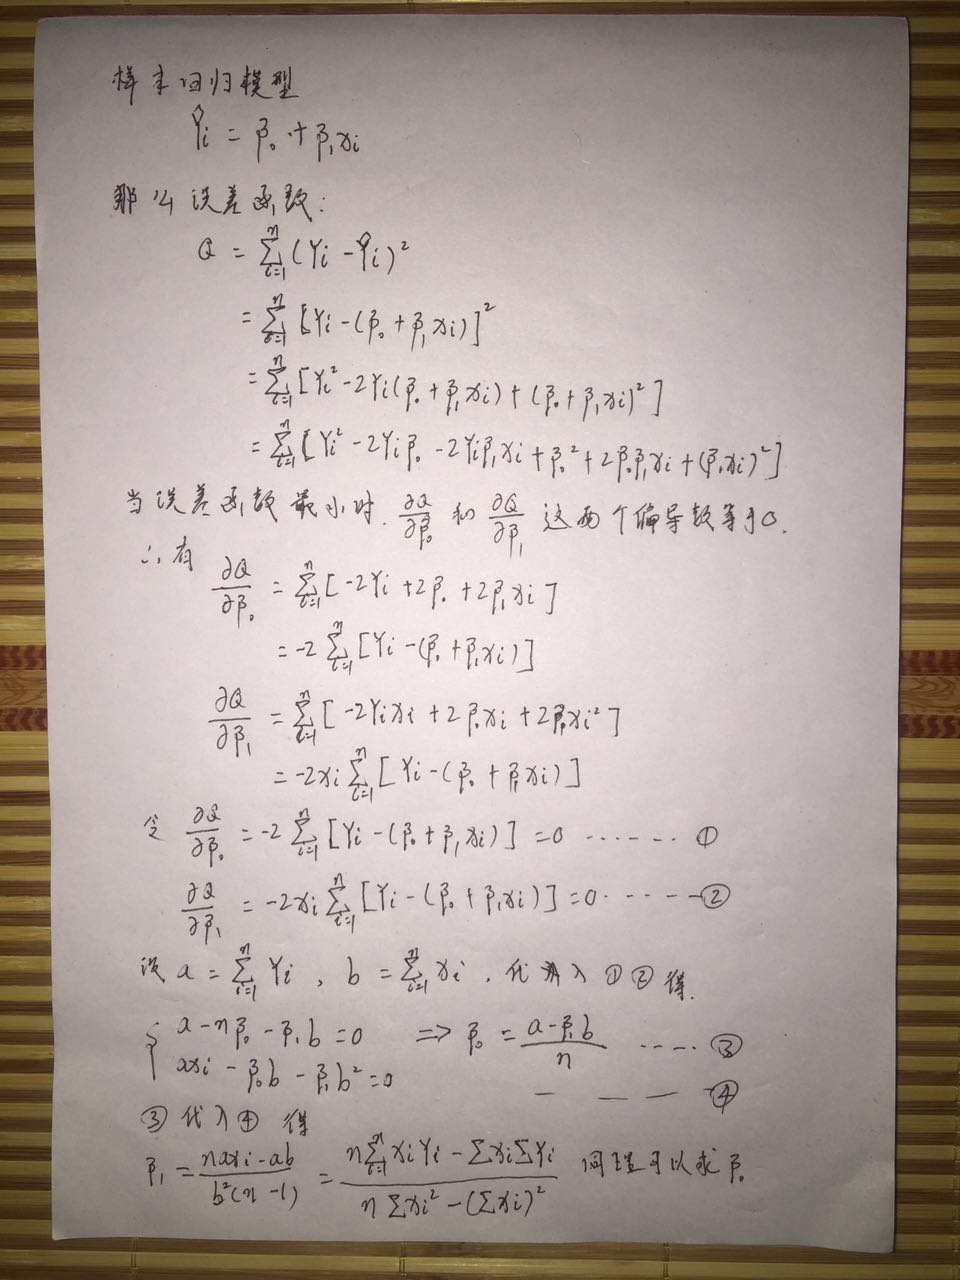 样本回归模型
Ŷi = β₀ + β₁xi
那么误差函数:
Q = ∑ⁿᵢ₌₁ (Yi - Ŷi)²
= ∑ⁿᵢ₌₁ [Yi - (β₀ + β₁xi)]²
= ∑ⁿᵢ₌₁ [Yi² - 2Yi(β₀ + β₁xi) + (β₀ + β₁xi)²]
= ∑ⁿᵢ₌₁ [Yi² - 2Yiβ₀ - 2Yiβ₁xi + β₀² + 2β₀β₁xi + (β₁xi)²]
当误差函数最小时. ∂Q/∂β₀ 和 ∂Q/∂β₁ 这两个偏导数等于0.
∴有
∂Q/∂β₀ = ∑ⁿᵢ₌₁ [-2Yi + 2β₀ + 2β₁xi]
= -2 ∑ⁿᵢ₌₁ [Yi - (β₀ + β₁xi)]
∂Q/∂β₁ = ∑ⁿᵢ₌₁ [-2Yixi + 2β₀xi + 2β₁xi²]
= -2xi ∑ⁿᵢ₌₁ [Yi - (β₀ + β₁xi)]
令 ∂Q/∂β₀ = -2 ∑ⁿᵢ₌₁ [Yi - (β₀ + β₁xi)] = 0 ······ ①
∂Q/∂β₁ = -2xi ∑ⁿᵢ₌₁ [Yi - (β₀ + β₁xi)] = 0 ······ ②
设 a = ∑ⁿᵢ₌₁ Yi , b = ∑ⁿᵢ₌₁ xi , 代入①②得.
{ a - nβ₀ - β₁b = 0 => β₀ = (a - β₁b)/n ····· ③
axi - β₀b - β₁b² = 0 — — — ④
③代入④得
β₁ = (naxi - ab)/(b²(n - 1)) = (n∑ⁿᵢ₌₁ xiYi - ∑xi∑Yi)/(n∑xi² - (∑xi)²) 同理可以求β₀